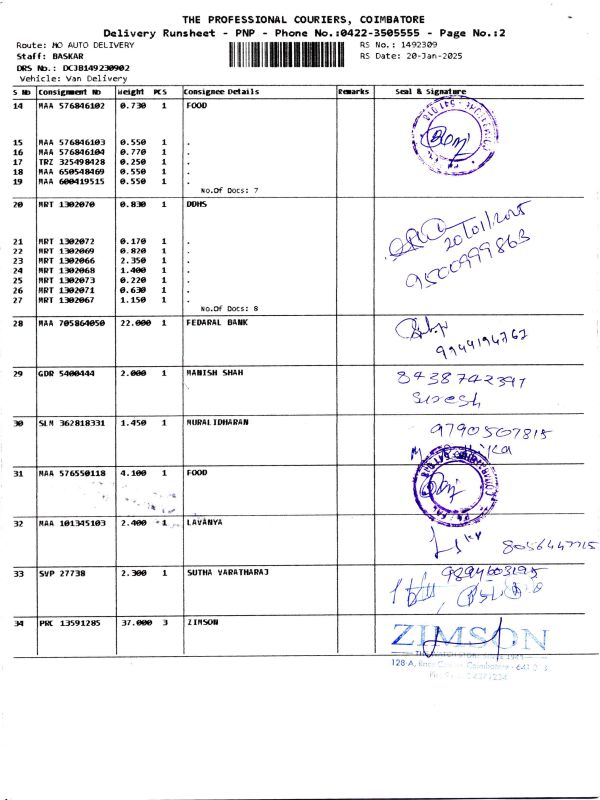 THE PROFESSIONAL COURIERS, COIMBATORE
Delivery Runsheet - PNP - Phone No.:0422-3505555 - Page No.:2
Route: MO AUTO DELIVERY RS No.: 1492309
Staff: BASKAR RS Date: 20-Jan-2025
DRS No.: DCJB149230902
Vehicle: Van Delivery
S No Consignment No Weight PCS Consignee Details Remarks Seal & Signature
14 MAA 576846102 0.730 1 FOOD
15 MAA 576846103 0.550 1 .
16 MAA 576846104 0.770 1 .
17 TRZ 325498428 0.250 1 .
18 MAA 650548469 0.550 1 .
19 MAA 600419515 0.550 1 .
No.Of Docs: 7
20 MRT 1302070 0.830 1 DDHS
20/01/2025
9500999863
21 MRT 1302072 0.170 1 .
22 MRT 1302069 0.820 1 .
23 MRT 1302066 2.350 1 .
24 MRT 1302068 1.400 1 .
25 MRT 1302073 0.220 1 .
26 MRT 1302071 0.630 1 .
27 MRT 1302067 1.150 1 .
No.Of Docs: 8
28 MAA 705864050 22.000 1 FEDARAL BANK
9944194762
29 GDR 5400444 2.000 1 MANISH SHAH 8438742397
Suresh
30 SLM 362818331 1.450 1 MURALIDHARAN 9790507815
31 MAA 576550118 4.100 1 FOOD
32 MAA 101345103 2.400 1 LAVANYA
33 SVP 27738 2.300 1 SUTHA VARATHARAJ 9894603195
34 PRC 13591285 37.000 3 ZIMSON ZIMSON